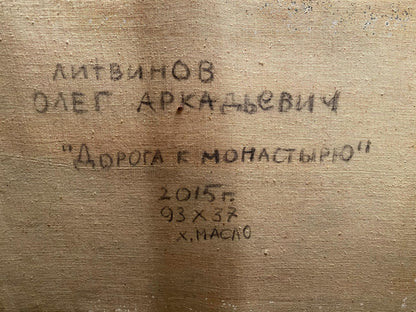 ЛИТВИНОВ
ОЛЕГ АРКАДЬЕВИЧ
"ДОРОГА К МОНАСТЫРЮ"
2015г.
93 X 37
Х. МАСЛО